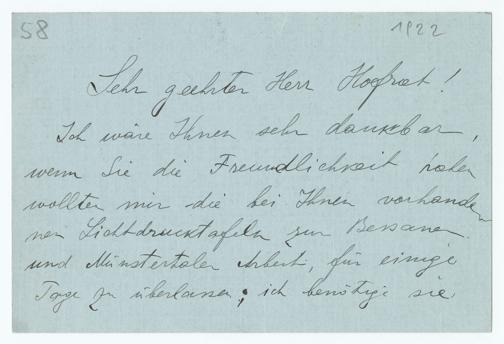 58
1922
Sehr geehrter Herr Hofrat!
Ich wäre Ihnen sehr dankbar,
wenn Sie die Freundlichkeit haben
wollten mir die bei Ihnen vorhande-
nen Lichtdrucktafeln zur
und Münstertaler Arbeit, für einige
Tage zu überlassen; ich benötige sie